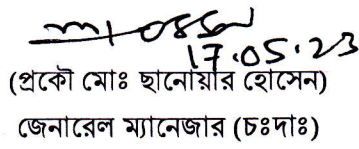 17.05.23
(প্রকৌ মোঃ ছানোয়ার হোসেন)
জেনারেল ম্যানেজার (চঃদাঃ)